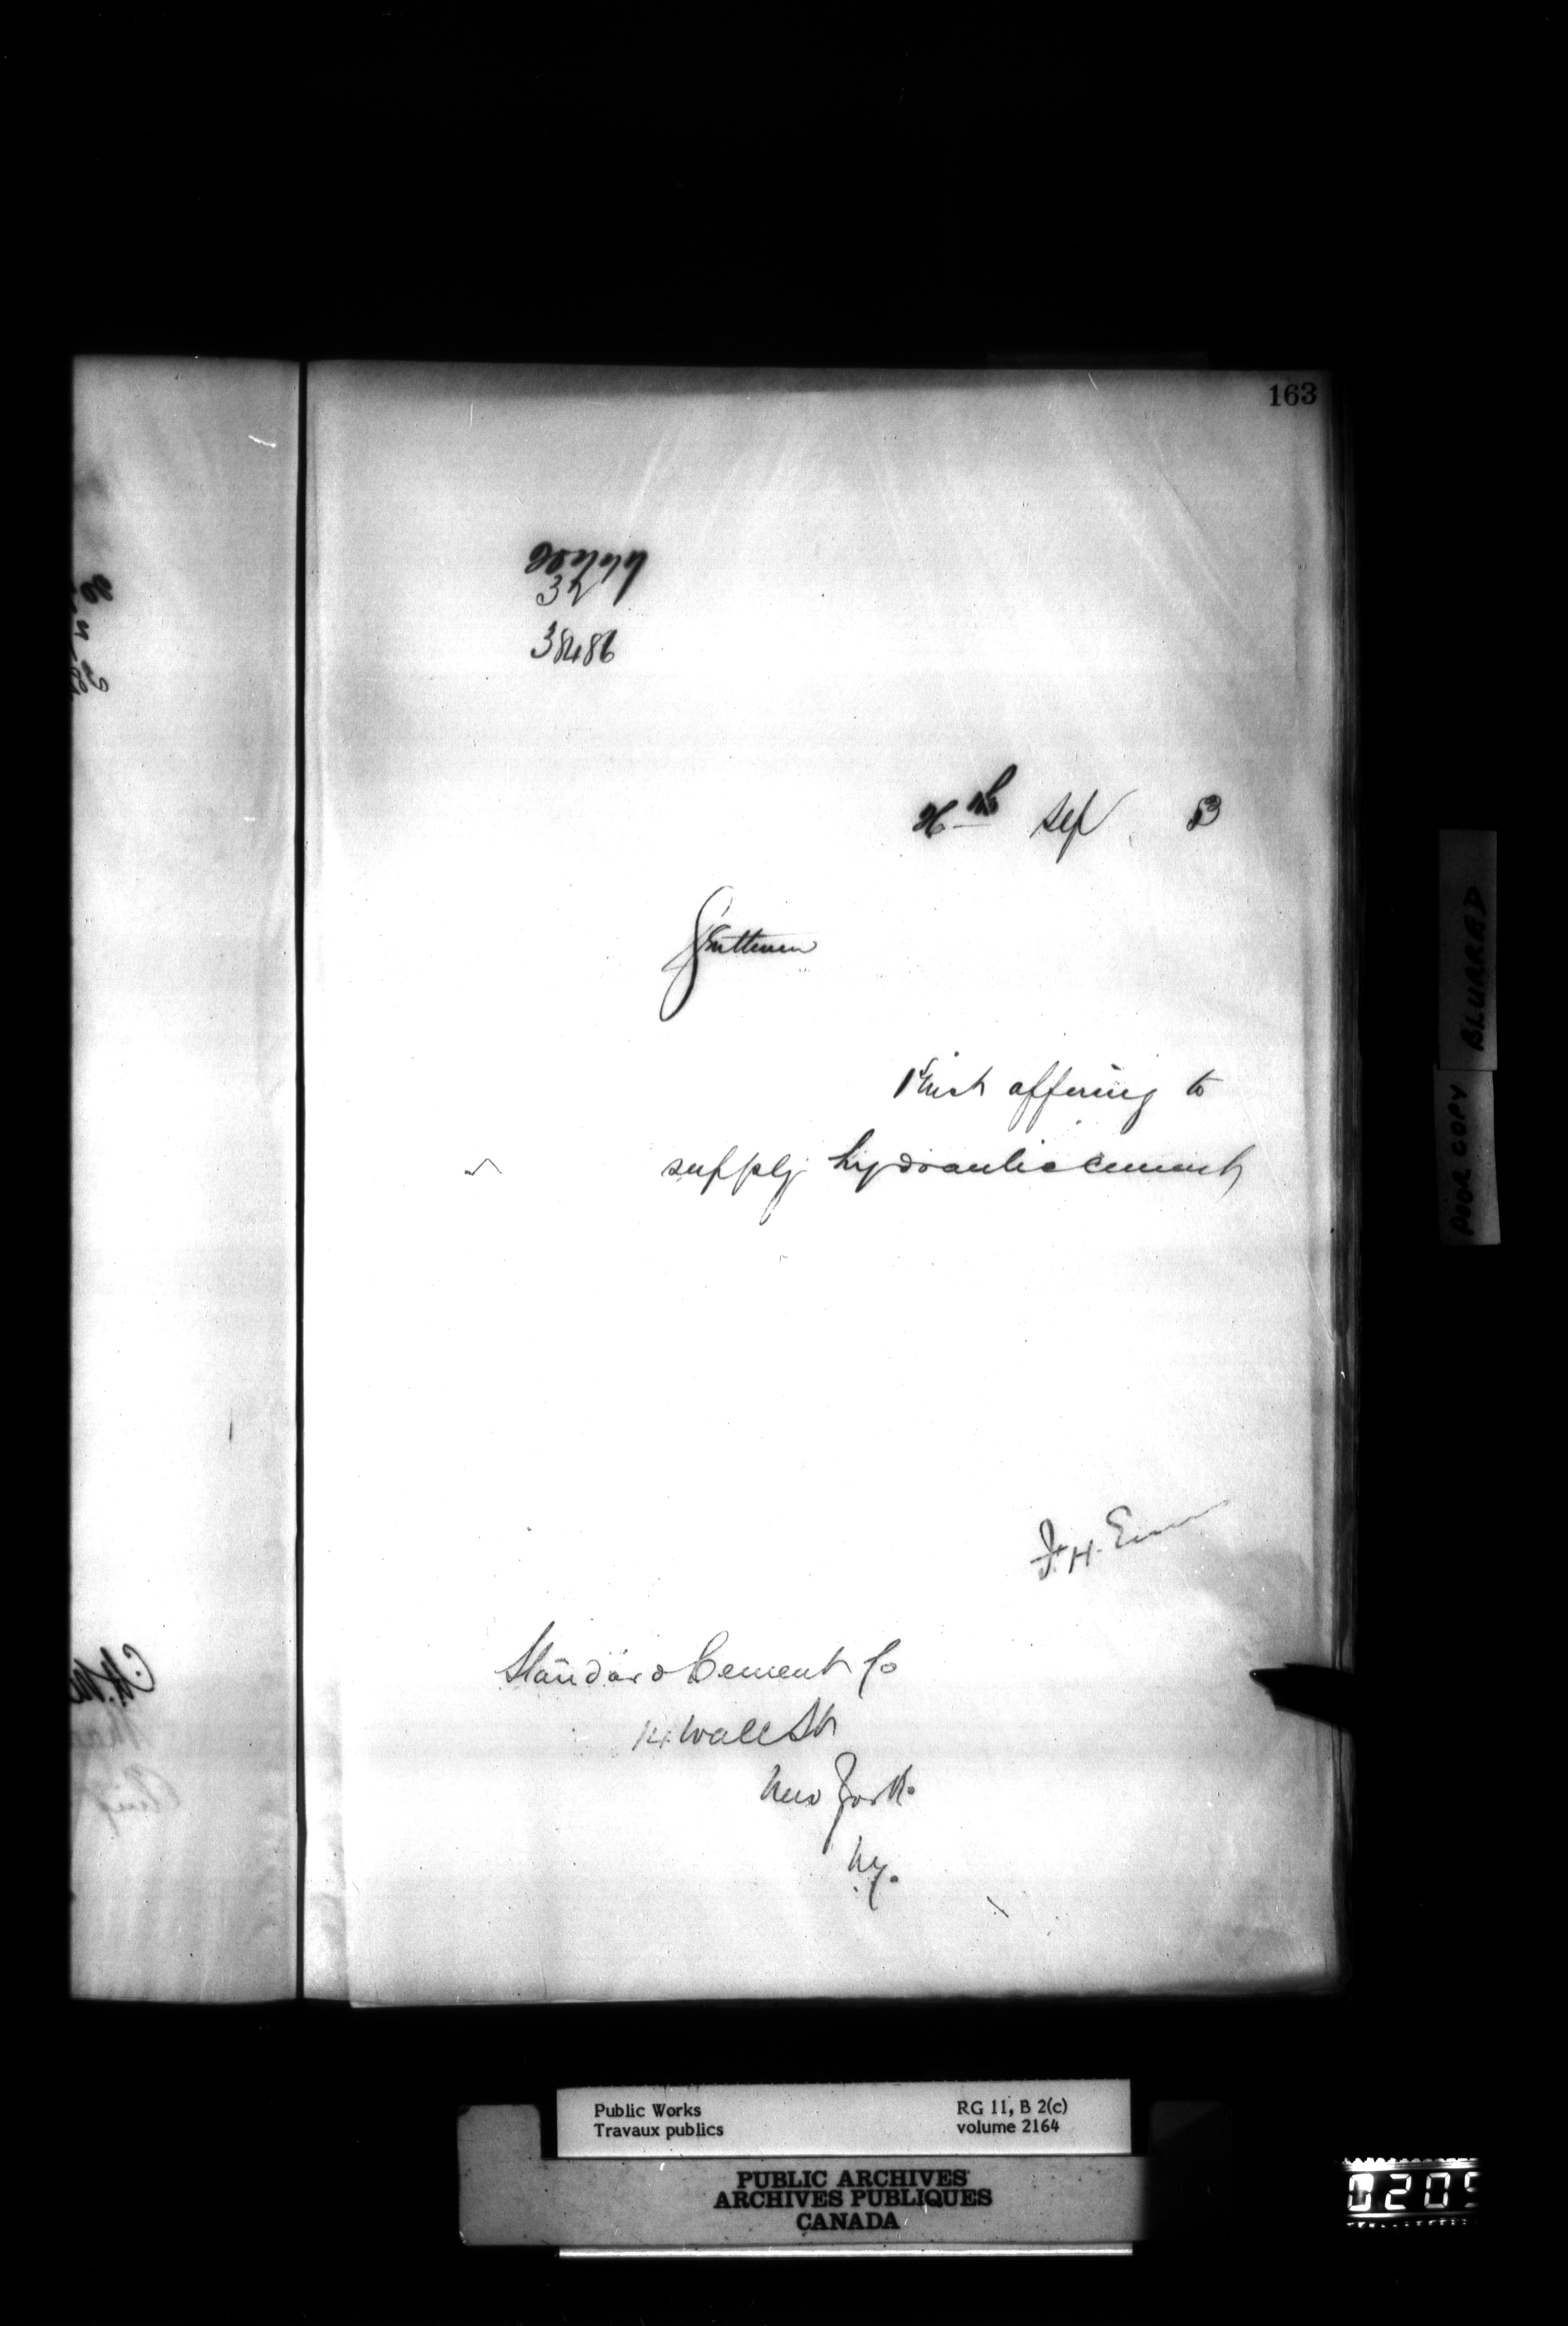 163
32
38486
26th Sep 83
Gentlemen
1st inst offering to
supply hydraulic cement
F. H. Ennis
Standard Cement Co
14 Wall St
New York
N.Y.
POOR COPY
BLURRED
Public Works
Travaux publics
RG 11, B 2(c)
volume 2164
PUBLIC ARCHIVES
ARCHIVES PUBLIQUES
CANADA
0205